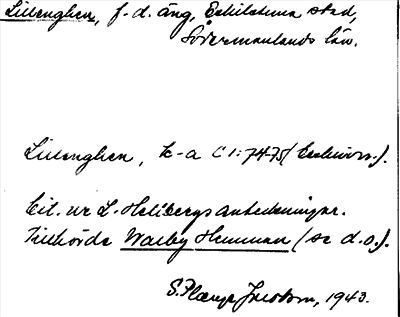 Lillenghen, f. d. äng, Eskilstuna stad,
Södermanlands län.
Lillenghen, k-a C 1: 7475 (Eschiörn.).
Cit. ur L. Hellbergs anteckningar.
Tillhörde Warby Hemman (se d. o.).
S. Plænge Jacobson, 1943.